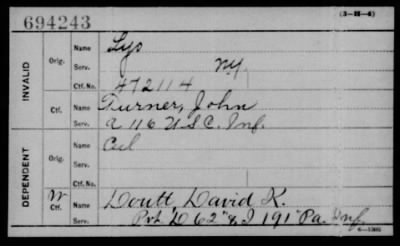 694243
(3—H—4)
INVALID
Orig.
Name
Serv.
N.Y.
Ctf. No.
472114
Ctf.
Name
Turner, John
Serv.
A 116 U.S.C. Inf.
DEPENDENT
Orig.
Name
Serv.
Ctf. No.
W
Ctf.
Name
Doutt, David K.
Serv.
Pvt. D 62" & I 191" Pa. Inf.